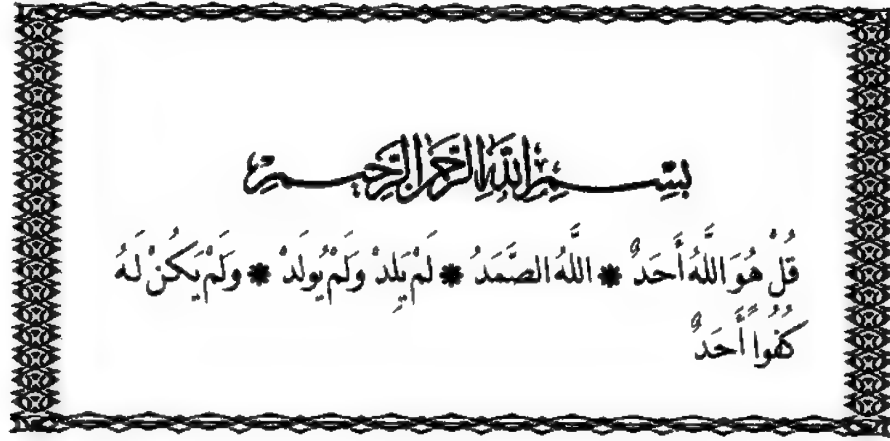 بِسْمِ اللَّهِ الرَّحْمَنِ الرَّحِيمِ
قُلْ هُوَ اللَّهُ أَحَدٌ * اللَّهُ الصَّمَدُ * لَمْ يَلِدْ وَلَمْ يُولَدْ * وَلَمْ يَكُنْ لَهُ
كُفُوًا أَحَدٌ